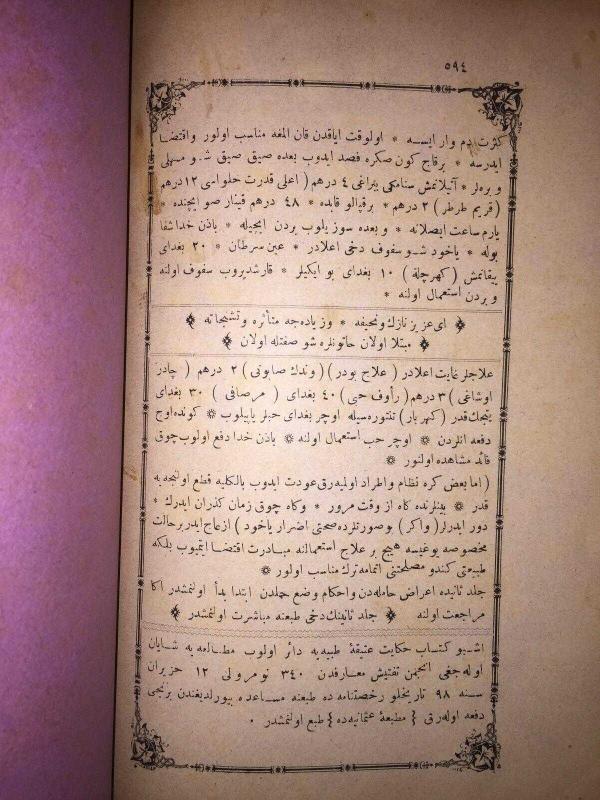 ٥٩٤
كثرت دم وار ايسه * اولوقت اياقدن قان المغه مناسب اولور واقتضا
ايدرسه * برقاچ كون صكره فصد ايدوب بعده صيق صيق شو مسهلى
ويره لر * آيلانمش سنامكى يپراغى ٤ درهم ( اعلى قدرت حلواسى ١٢ درهم
( قريم طرطر ) ٢ درهم * برقپالو قابده * ٤٨ درهم قينار صو ايچنده *
يارم ساعت ايصلانه * و بعده سوزيلوب بردن ايچيله * باذن خدا شفا
بوله * ياخود شو سفوف دخى اعلادر * عين سرطان * ٢٠ بغداى
ييقانمش ( كهرچله ) ١٠ بغداى بو ايكيلر * قارشديروب سفوف اولنه
و بردن استعمال اولنه *
اى عزيز نازك ونحيفه * وزياده جه متأثره وتشنجاته
مبتلا اولان خاتونلره شو صفتله اولان
علاجلر غايت اعلادر ( علاج بودر ) ( وندك صابونى ) ٢ درهم ( چادر
اوشاغى ) ٣ درهم ( رأوف حبى ) ٤٠ بغداى ( مرصافى ) ٣٠ بغداى
ينجك قدر ( كهربار ) تنتوره سيله اوچر بغداى حبلر ياپيلوب * كونده اوچ
دفعه انلردن * اوچر حب استعمال اولنه * باذن خدا دفع اولوب چوق
فائد مشاهده اولنور
( اما بعض كره نظام واطراد اولميه رق عودت ايدوب بالكليه قطع اولنجه يه
قدر * بينلرنده كاه از وقت مرور * وكاه چوق زمان كذران ايدرك *
دور ايدرلر ( واكر ) بوصورتلرده صحتى اضرار ياخود ) ازعاج ايدر برحالت
مخصوصه يوغيسه هيچ بر علاج استعمالنه مبادرت اقتضا ايتميوب بلكه
طبيعتى كندو مصلحتنى اتمامه ترك مناسب اولور *
جلد ثانيده اعراض حامله دن واحكام وضع حملدن ابتدا بدأ اولنمشدر اكا
مراجعت اولنه جلد ثانينك دخى طبعنه مباشرت اولنمشدر
اشبو كتاب حكايت عتيقۀ طبيه يه دائر اولوب مطالعه يه شايان
اوله جغى انجمن تفتيش معارفدن ٣٤٠ نومرولى ١٢ حزيران
سنه ٩٨ تاريخلو رخصتنامه ده طبعنه مساعده بيورلديغندن برنجى
دفعه اوله رق { مطبعۀ عثمانيه ده } طبع اولنمشدر .